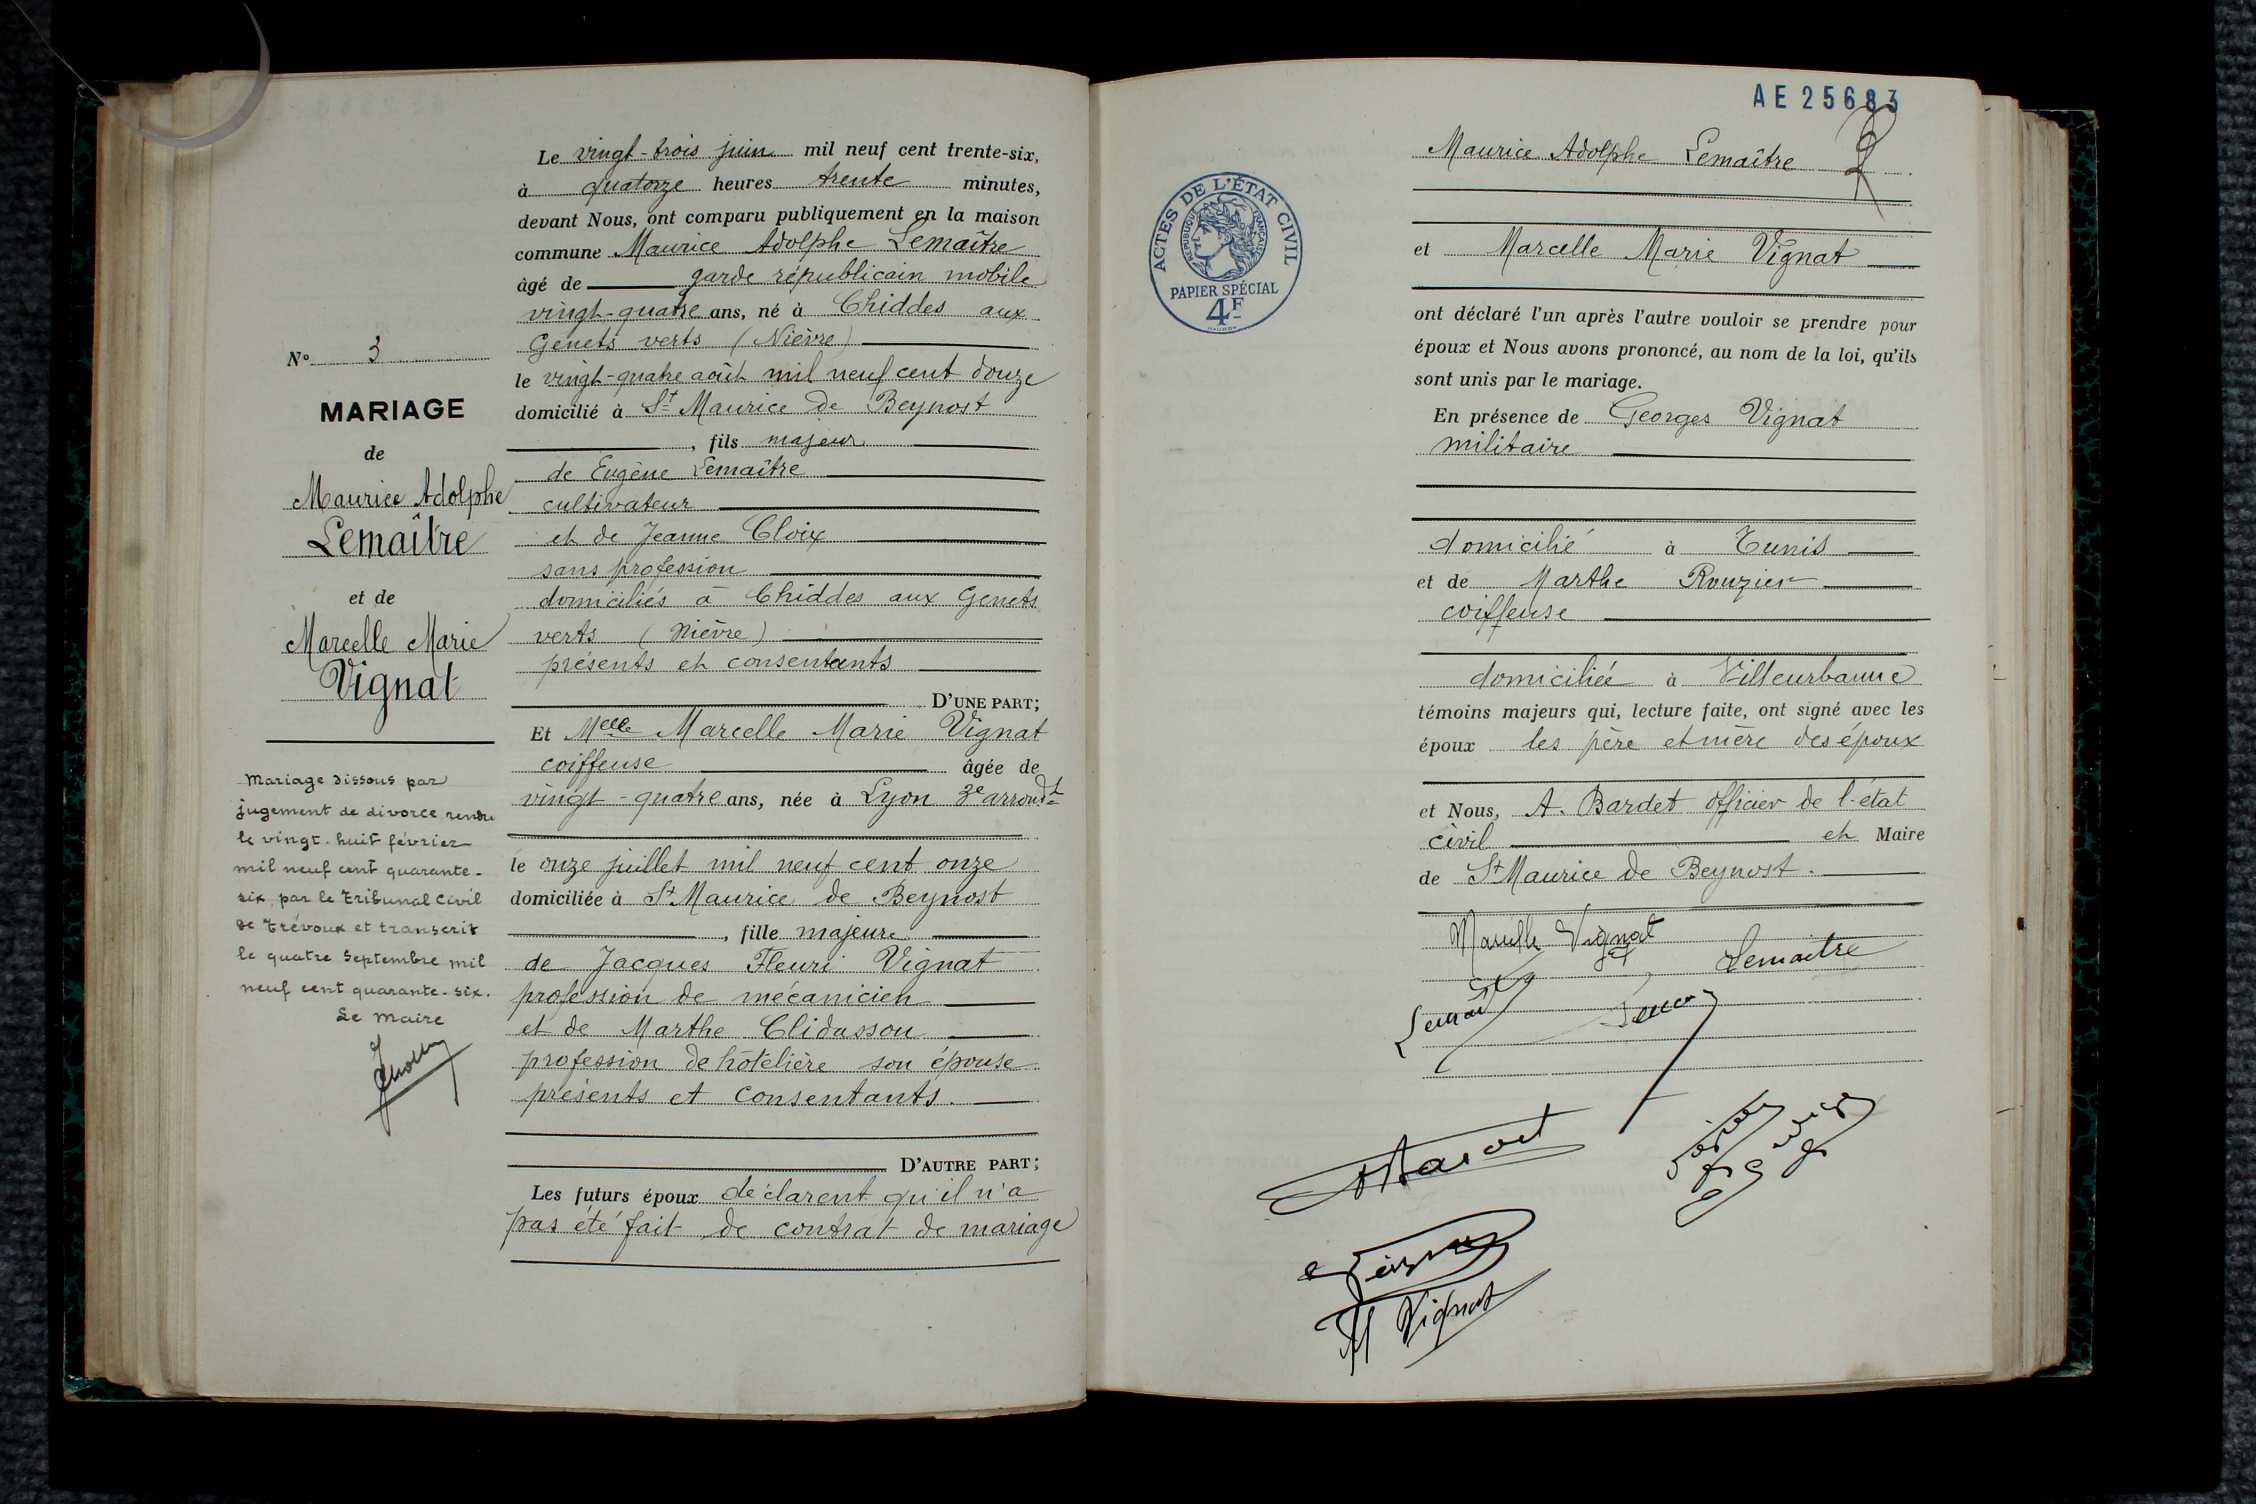 N° 3
MARIAGE
de
Maurice Adolphe
Lemaître
et de
Marcelle Marie
Vignat
Mariage dissous par
jugement de divorce rendu
le vingt-huit février
mil neuf cent quarante-
six par le tribunal civil
de Trévoux et transcrit
le quatre septembre mil
neuf cent quarante-six.
Le Maire
Le vingt-trois juin mil neuf cent trente-six,
à quatorze heures trente minutes,
devant Nous, ont comparu publiquement en la maison
commune Maurice Adolphe Lemaître
âgé de garde républicain mobile
vingt-quatre ans, né à Chiddes aux
Genets verts (Nièvre)
le vingt-quatre août mil neuf cent douze
domicilié à St Maurice de Beynost
, fils majeur
de Eugène Lemaître
cultivateur
et de Jeanne Cloix
sans profession
domiciliés à Chiddes aux Genets
verts (Nièvre)
présents et consentants
D'UNE PART;
Et Melle Marcelle Marie Vignat
coiffeuse âgée de
vingt-quatre ans, née à Lyon 3e arrondt
le onze juillet mil neuf cent onze
domiciliée à St Maurice de Beynost
, fille majeure
de Jacques Fleuri Vignat
profession de mécanicien
et de Marthe Clidassou
profession de hôtelière son épouse
présents et consentants.
D'AUTRE PART;
Les futurs époux déclarent qu'il n'a
pas été fait de contrat de mariage
AE 25683
ACTES DE L'ÉTAT CIVIL
RÉPUBLIQUE FRANÇAISE
PAPIER SPÉCIAL
4F
Maurice Adolphe Lemaître
et Marcelle Marie Vignat
ont déclaré l'un après l'autre vouloir se prendre pour
époux et Nous avons prononcé, au nom de la loi, qu'ils
sont unis par le mariage.
En présence de Georges Vignat
militaire
domicilié à Tunis
et de Marthe Rouzier
coiffeuse
domiciliée à Villeurbanne
témoins majeurs qui, lecture faite, ont signé avec les
époux les père et mère des époux
et Nous, A. Bardet officier de l'état
civil et Maire
de St Maurice de Beynost.
Marcelle Vignat
Lemaitre
M Vignat